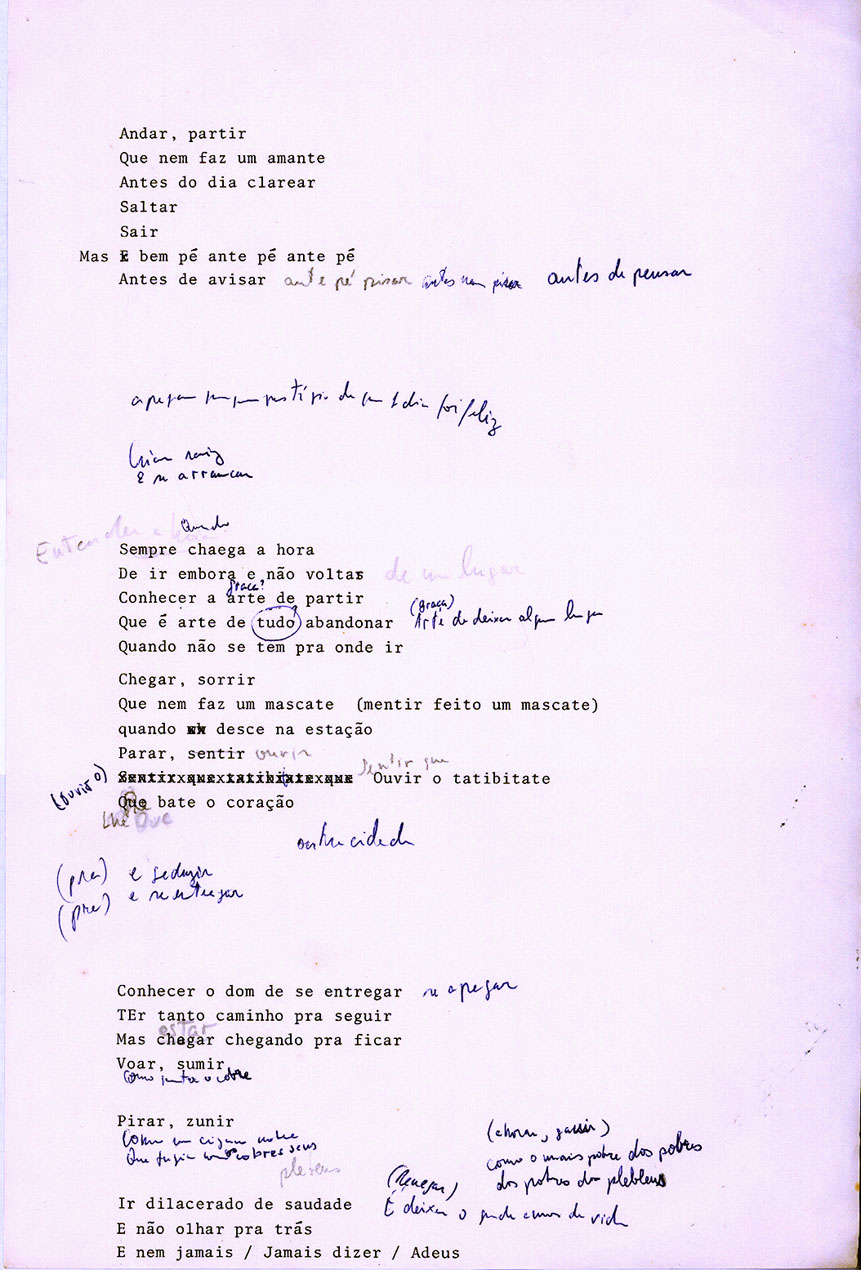 Andar, partir
Que nem faz um amante
Antes do dia clarear
Saltar
Sair
Mas E bem pé ante pé ante pé
Antes de avisar ante pé pisar antes nem pisar antes de pensar
apagar vestígio de que 1 dia foi feliz
Criar raiz
E se arrancar
Quando
Entender a hora
Sempre chaega a hora
De ir embora e não voltar de um lugar
graça?
Conhecer a arte de partir
(graça)
Que é arte de tudo abandonar Arte de deixar algum lugar
Quando não se tem pra onde ir
Chegar, sorrir
Que nem faz um mascate (mentir feito um mascate)
quando desce na estação
Parar, sentir ouvir
sentir que
(ouvir o) Sentirxxquexxtatibitatexxque Ouvir o tatibitate
Que bate o coração
Lhe Que
outra cidade
(pra) e seduzir
(pra) e se entregar
Conhecer o dom de se entregar se apegar
TEr tanto caminho pra seguir
estar
Mas chegar chegando pra ficar
Voar, sumir
Como junta o cobre
Pirar, zunir
Como um cigano nobre
Que fugiu cobres seus
plebeus
(chorar, ganir)
como o mais pobre dos pobres
dos pobres dos plebleus
(Renegar)
Ir dilacerado de saudade É deixar o grande amor da vida
E não olhar pra trás
E nem jamais / Jamais dizer / Adeus